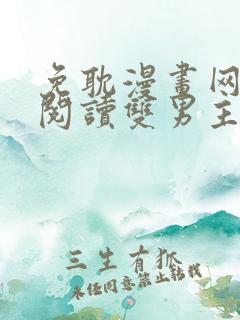 免耽漫畫网
閱讀雙男主
三生有狐
未经同意禁止转载